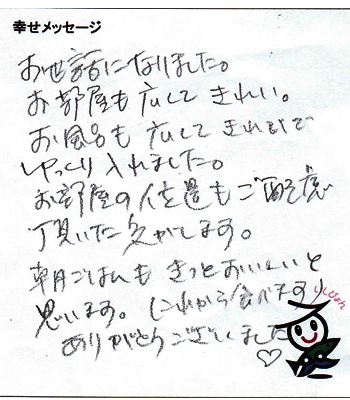 幸せメッセージ
お世話になりました。
お部屋も広くて きれい。
お風呂も 広くて きれいで
ゆっくり入れました。
お部屋の位置もご配慮
頂いた気がします。
朝ごはんも きっとおいしいと
思います。(これから食べます)
ありがとうございました♡